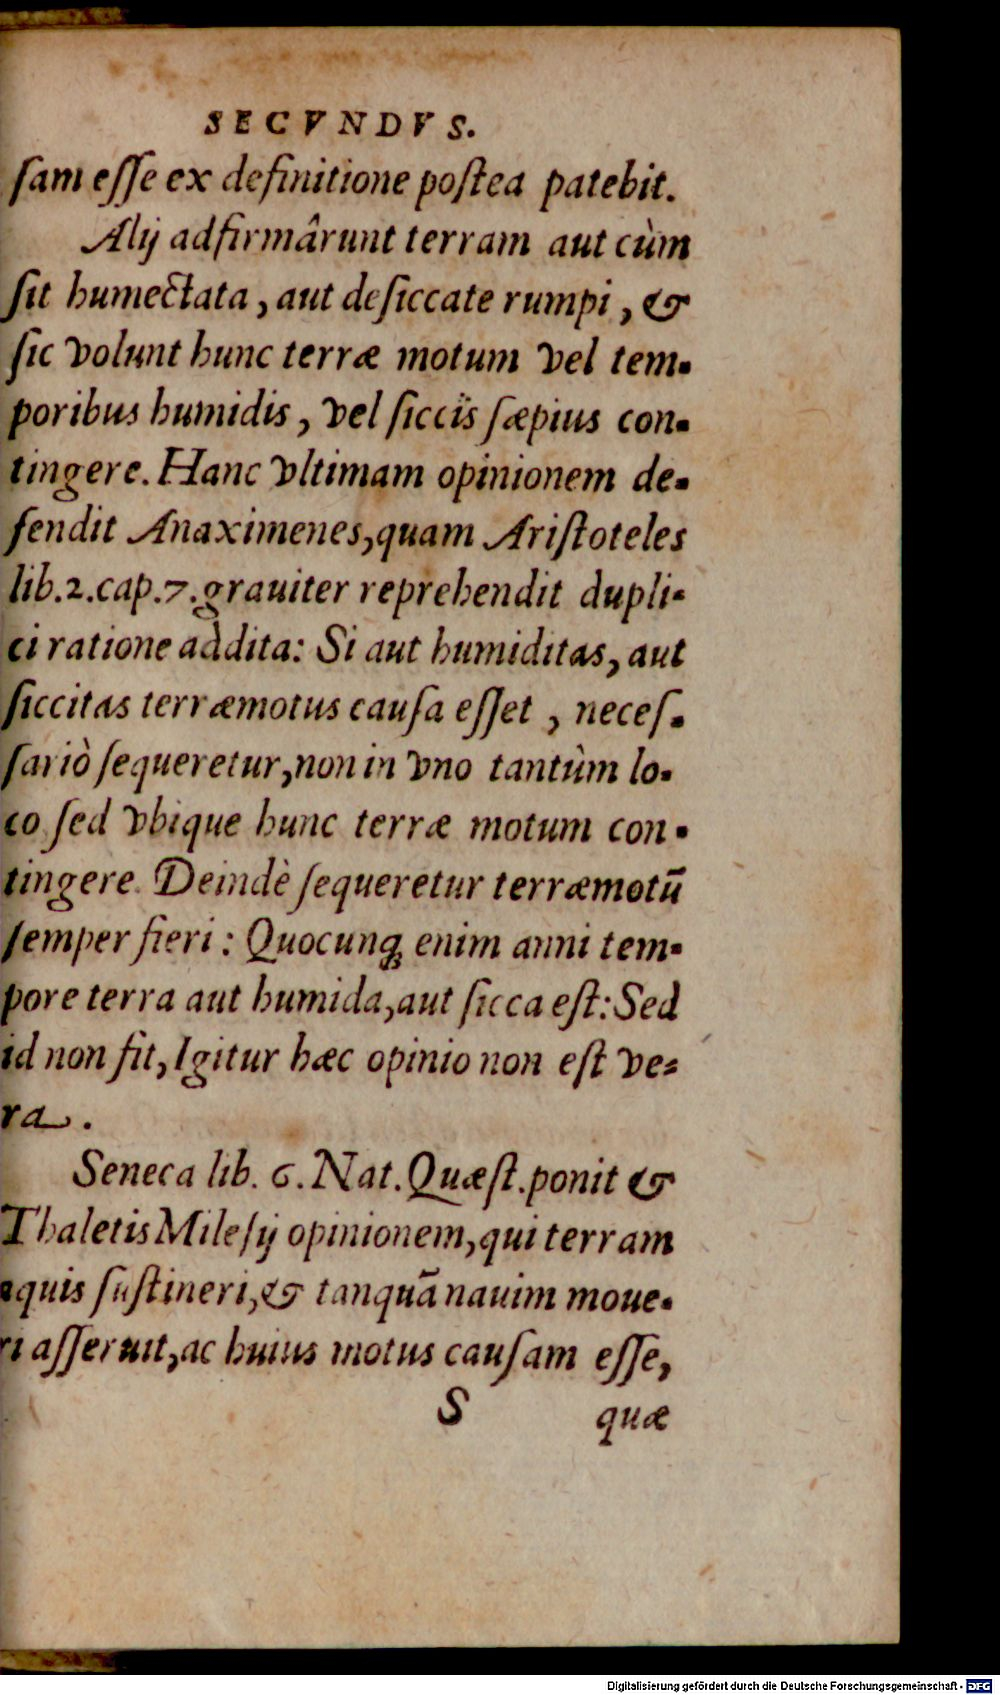 SECVNDVS.
ſam eſſe ex definitione poſtea patebit.
Alij adfirmârunt terram aut cùm
ſit humectata, aut deſiccate rumpi, &
ſic volunt hunc terræ motum vel tem-
poribus humidis, vel ſiccïs ſæpius con-
tingere. Hanc vltimam opinionem de-
fendit Anaximenes, quam Ariſtoteles
lib.2.cap.7.grauiter reprehendit dupli-
ci ratione addita: Si aut humiditas, aut
ſiccitas terræmotus cauſa eſſet, neceſ-
ſariò ſequeretur, non in vno tantùm lo-
co ſed vbique hunc terræ motum con-
tingere. Deindè ſequeretur terræmotū
ſemper fieri: Quocunq; enim anni tem-
pore terra aut humida, aut ſicca eſt: Sed
id non fit, Igitur hæc opinio non eſt ve-
ra.
Seneca lib. 6. Nat. Quæſt. ponit &
Thaletis Mileſij opinionem, qui terram
aquis ſuſtineri, & tanquā nauim moue-
ri aſſeruit, ac huius motus cauſam eſſe,
S quæ
Digitalisierung gefördert durch die Deutsche Forschungsgemeinschaft - DFG